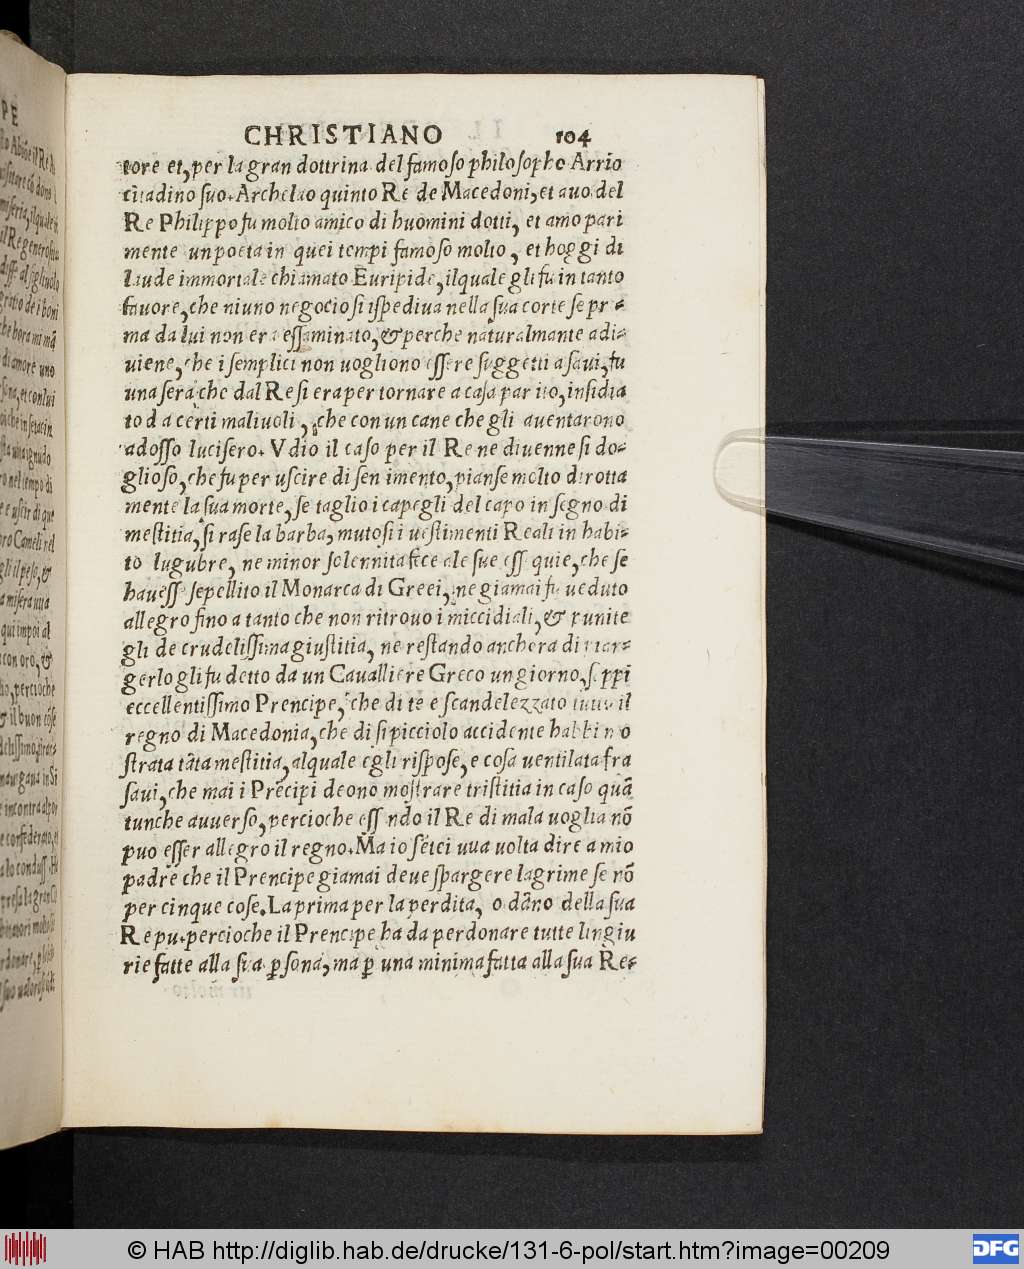 CHRISTIANO 104
tore et, per la gran dottrina del famoso philosopho Arrio
citadino suo. Archelao quinto Re de Macedoni, et auo del
Re Philippo fu molto amico di huomini dotti, et amo pari
mente un poeta in quei tempi famoso molto, et hoggi di
laude immortale chiamato Euripide, ilquale gli fu in tanto
fauore, che niuno negocio si ispediua nella sua corte se pr -
ma da lui non era essaminato, & perche naturalmante adi-
uiene, che i semplici non uogliono essere suggetti a saui, fu
una sera che dal Re si era per tornare a casa partito, insidia
to da certi maliuoli, che con un cane che gli auentarono
adosso lucisero. Vdio il caso per il Re ne diuenne si do-
glioso, che fu per uscire di sentimento, pianse molto dirotta
mente la sua morte, se taglio i capegli del capo in segno di
mestitia, si rase la barba, mutosi i uestimenti Reali in habi-
to lugubre, ne minor solennita fece ale sue essequie, che se
hauesse sepellito il Monarca di Greci, ne giamai fu ueduto
allegro fino a tanto che non ritrouo i miccidiali, & punite
gli de crudelissima giustitia, ne restando anchora di piar-
gerlo gli fu detto da un Caualliere Greco un giorno, sappi
eccellentissimo Prencipe, che di te e scandelezzato tutto il
regno di Macedonia, che di si picciolo accidente habbi mo
strata tāta mestitia, alquale egli rispose, e cosa uentilata fra
saui, che mai i Prēcipi deono mostrare tristitia in caso quā
tunche auuerso, percioche essendo il Re di mala uoglia nō
puo esser allegro il regno. Ma io sētei uua uolta dire a mio
padre che il Prencipe giamai deue spargere lagrime se nō
per cinque cose. La prima per la perdita, o dāno della sua
Repu. percioche il Prencipe ha da perdonare tutte lingiu
rie fatte alla sua ꝑsona, ma ꝑ una minima fatta alla sua Re-
© HAB http://diglib.hab.de/drucke/131-6-pol/start.htm?image=00209
DFG